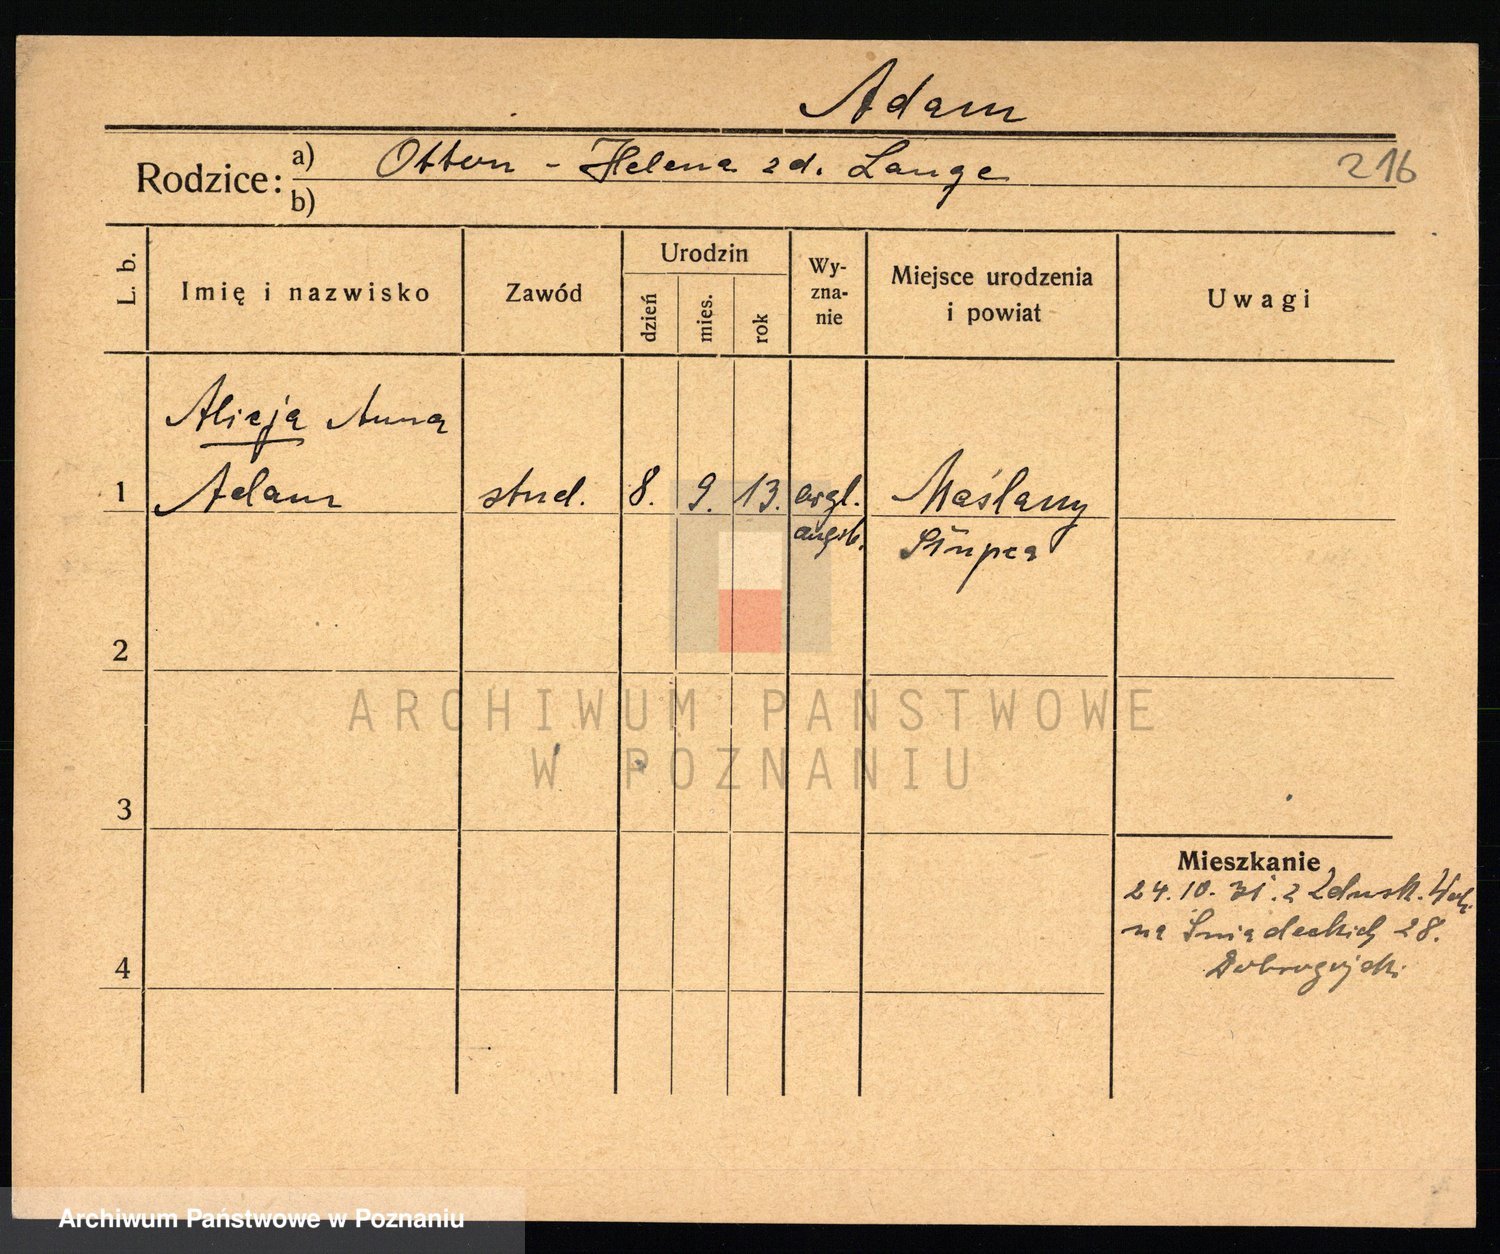 Adam
Rodzice: a) Otton - Helena zd. Lange
216
b)
L. b.
Imię i nazwisko
Zawód
Urodzin
dzień
mies.
rok
Wy-
zna-
nie
Miejsce urodzenia
i powiat
Uwagi
Alicja Anna
1 Adam stud. 8. 9. 13. ewgl. Maślany
augsb. Słupca
2
ARCHIWUM PAŃSTWOWE
W POZNANIU
3
Mieszkanie
24.10.31. z Zdusk. Woli
na Śniadeckich 28.
4
Dobrogojski
Archiwum Państwowe w Poznaniu